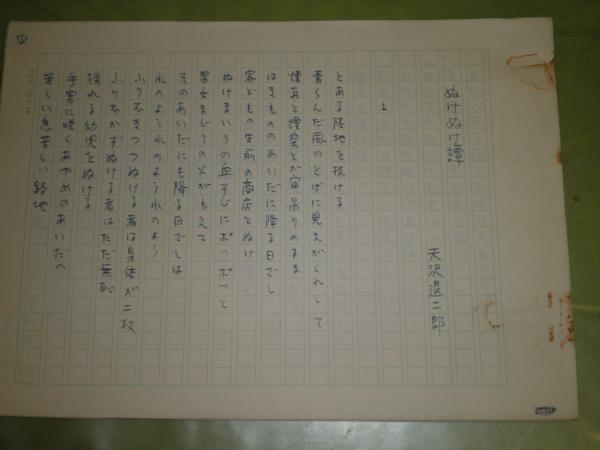 ぬけぬけ譚
天沢退二郎
1
とある陸地を抜ける
青らんだ風のとげに見えがくれして
煙英と煙突とが宙吊りのまま
はきもののあいだに降る日ざし
客どもの生前の商店をぬけ
ぬけまいりの血すじにポッポッと
男女まじりの火がもえて
そのあいだにも降る日ざしは
氷のよう氷のよう氷のよう
ふりむきつつぬける者は身体が二枚
ふりむかずぬける者はただ無恥
揺れる幼児をぬける
子宮に咲くあやめのあいだの
苦しい息苦しい路地